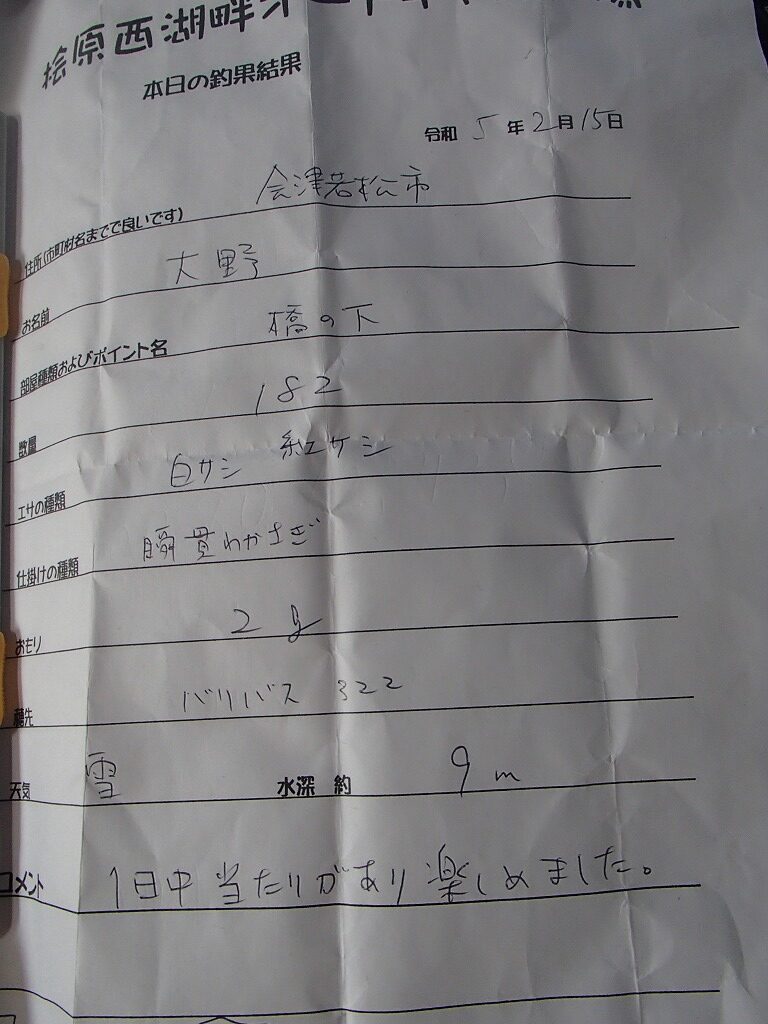 桧原西湖畔オ
本日の釣果結果
令和 5 年 2 月 15 日
住所(市町村名までで良いです) 会津若松市
お名前 大野
部屋種類およびポイント名 橋の下
数量 182
エサの種類 白サシ 紅サシ
仕掛けの種類 瞬貫わかさぎ
おもり 2g
穂先 バリバス 322
天気 雪 水深 約 9m
コメント 1日中当たりがあり楽しめました。